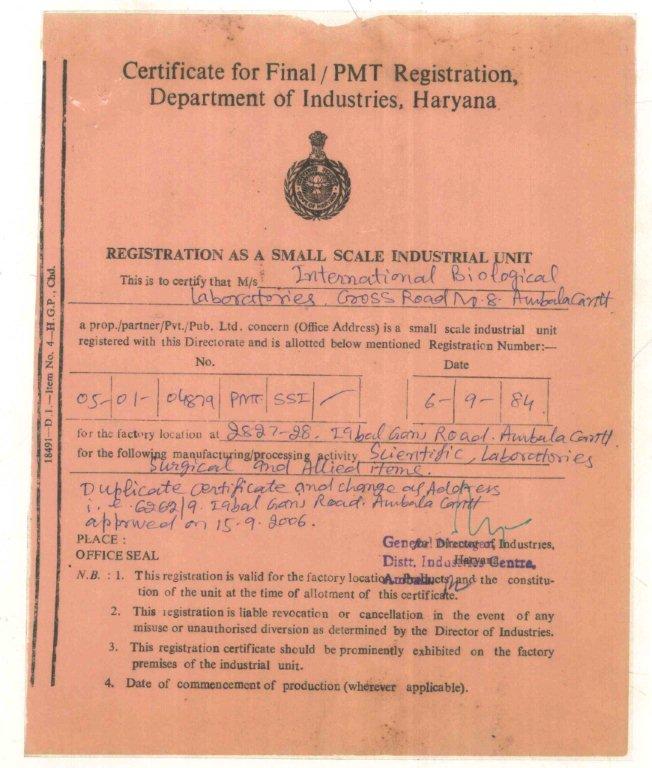 Certificate for Final / PMT Registration,
Department of Industries, Haryana
REGISTRATION AS A SMALL SCALE INDUSTRIAL UNIT
This is to certify that M/s International Biological
Laboratories, Cross Road No. 8. Ambala Cantt
a prop./partner/Pvt./Pub. Ltd. concern (Office Address) is a small scale industrial unit
registered with this Directorate and is allotted below mentioned Registration Number:—
No. Date
05- 01- 04879 PMT SSI 6- 9- 84
for the factory location at 2827-28, Iqbal Ganj Road. Ambala Cantt.
for the following manufacturing/processing activity Scientific, Laboratories
Surgical and Allied items.
Duplicate certificate and change of Address
i.e. 6262/9. Iqbal Ganj Road. Ambala Cantt
approved on 15.9.2006.
PLACE :
OFFICE SEAL
for Director of Industries,
Haryana
General Manager,
Distt. Industries Centre,
Ambala.
N.B. : 1. This registration is valid for the factory location, Products and the constitu-
tion of the unit at the time of allotment of this certificate.
2. This registration is liable revocation or cancellation in the event of any
misuse or unauthorised diversion as determined by the Director of Industries.
3. This registration certificate should be prominently exhibited on the factory
premises of the industrial unit.
4. Date of commencement of production (wherever applicable).
18491—D.I.—Item No. 4—H.G.P., Chd.